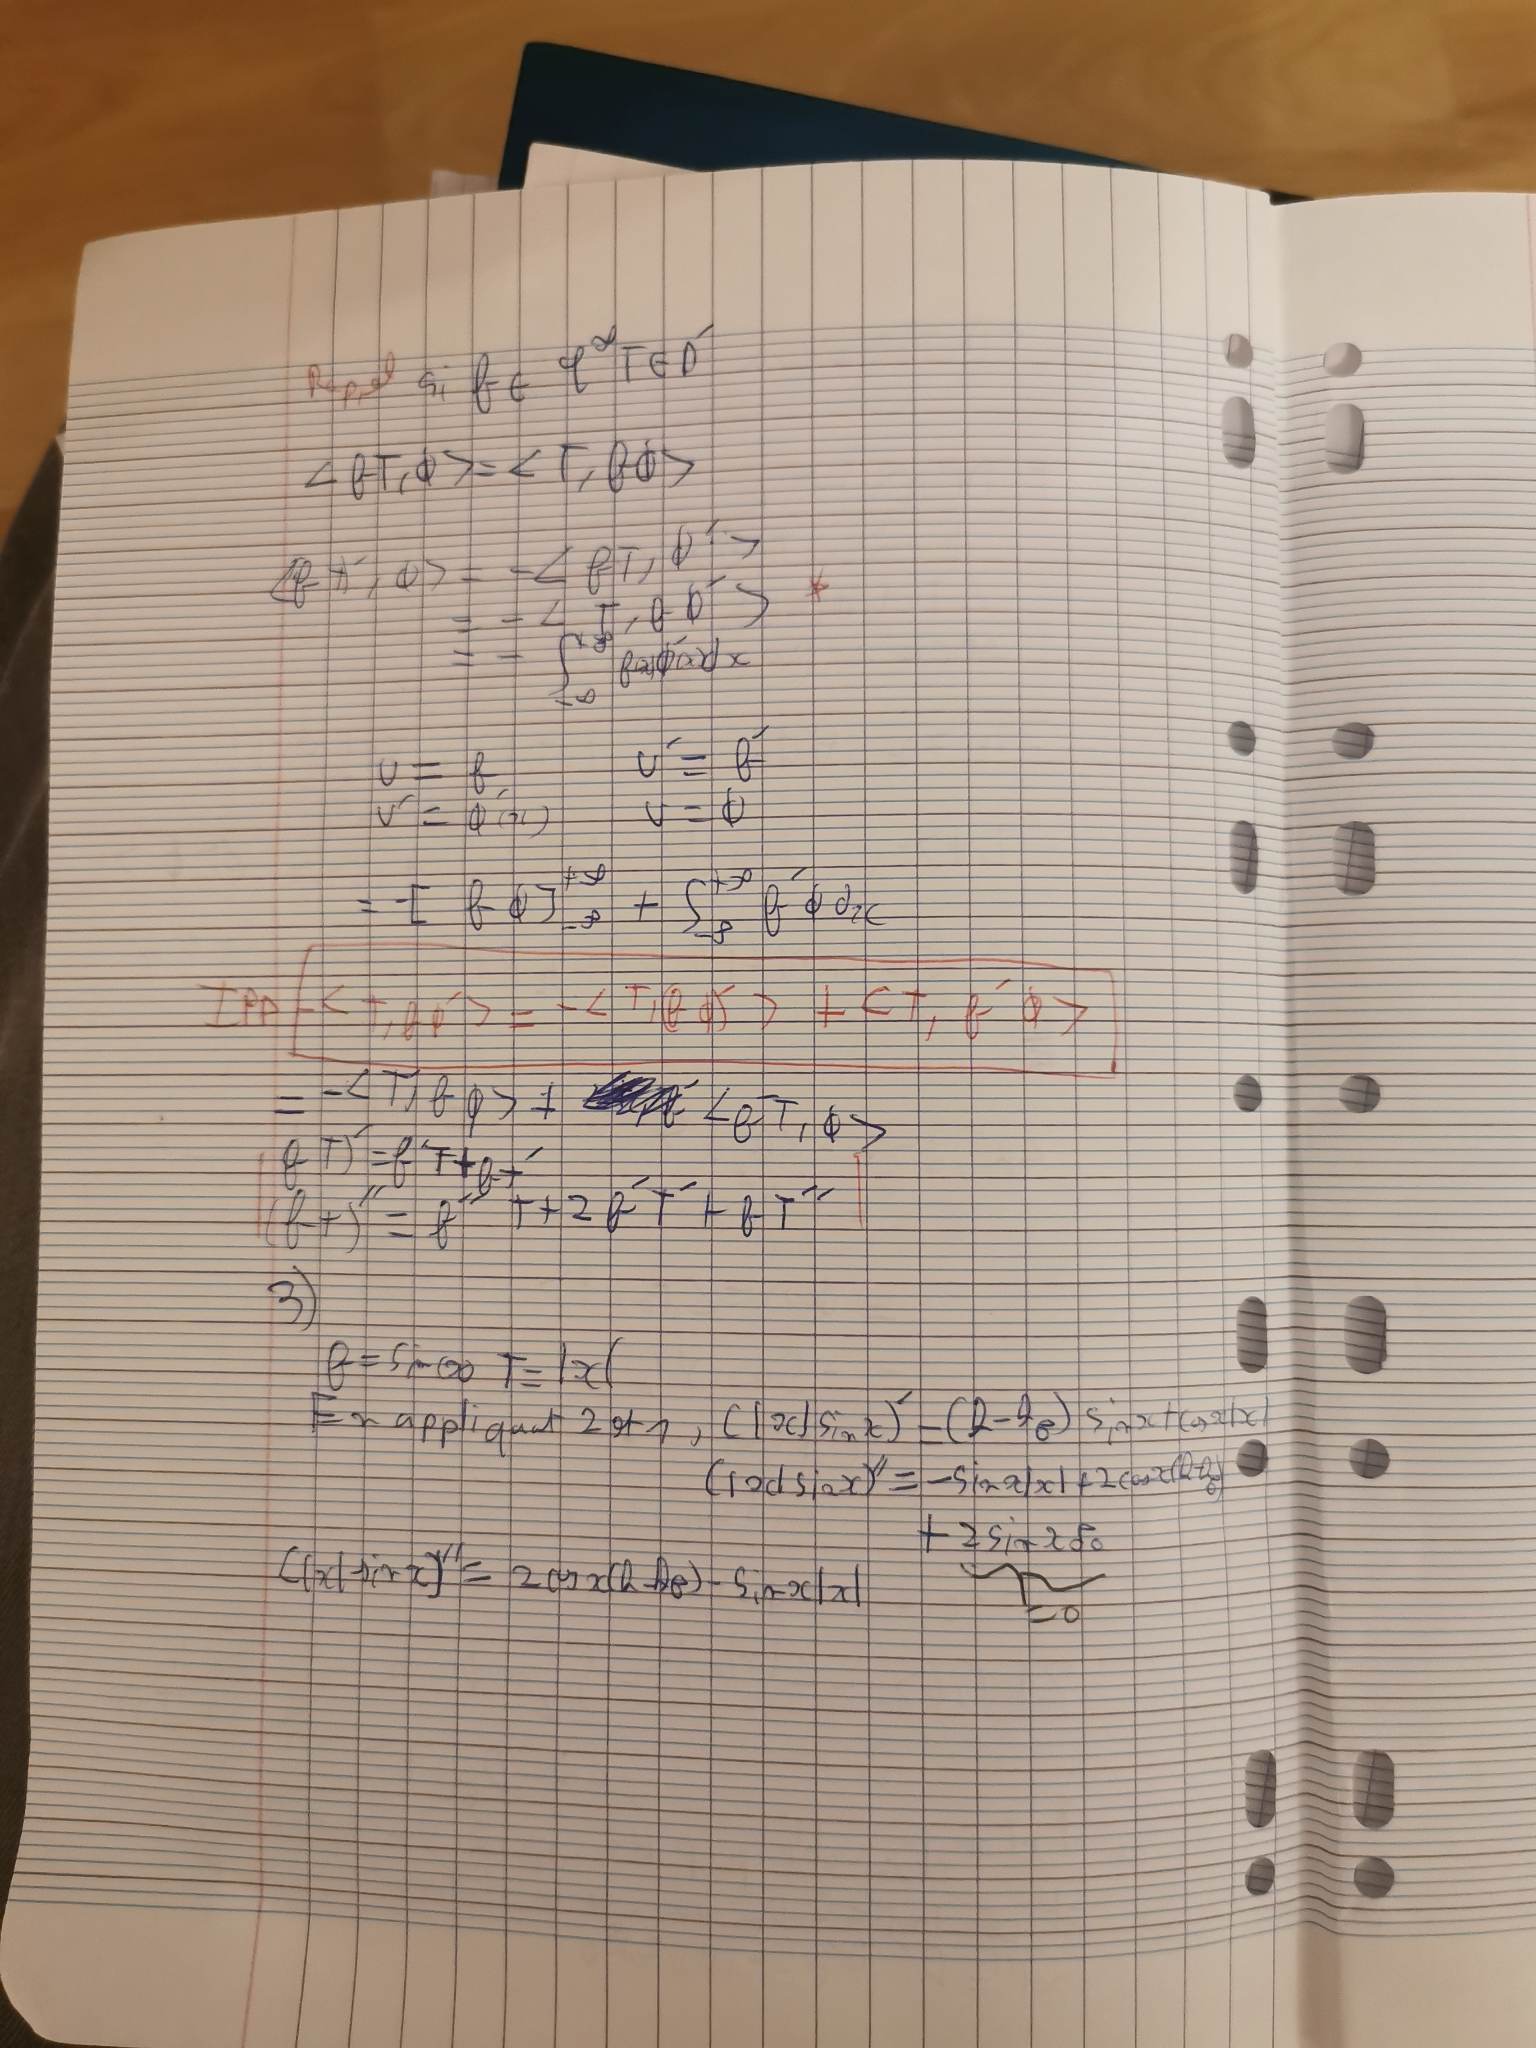 Rappel si f ∈ C^∞ T ∈ D'
<fT, φ> = <T, fφ>
<fT', φ> = -<fT, φ'>
= -<T, fφ'> *
= - ∫_{-∞}^{+∞} f(x)φ'(x)dx
u = f u' = f'
v' = φ'(x) v = φ
= -[fφ]_{-∞}^{+∞} + ∫_{-∞}^{+∞} f'φ dx
IPP -<T, fφ'> = -<T, (fφ)'> + <T, f'φ>
= -<T, fφ> + <f'T, φ>
fT)' = f'T + fT'
(fT)'' = f'' T + 2f'T' + fT''
3)
f = sin(x) T = |x|
En appliquant 2 et 1, (|x| sin x)' = (h - h_θ) sin x + cos x|x|
(|x| sin x)'' = -sin x|x| + 2cos x(h-h_θ)
+ 2 sin x δ₀
(|x| sin x)'' = 2cos x(h-h_θ) - sin x|x|
= 0